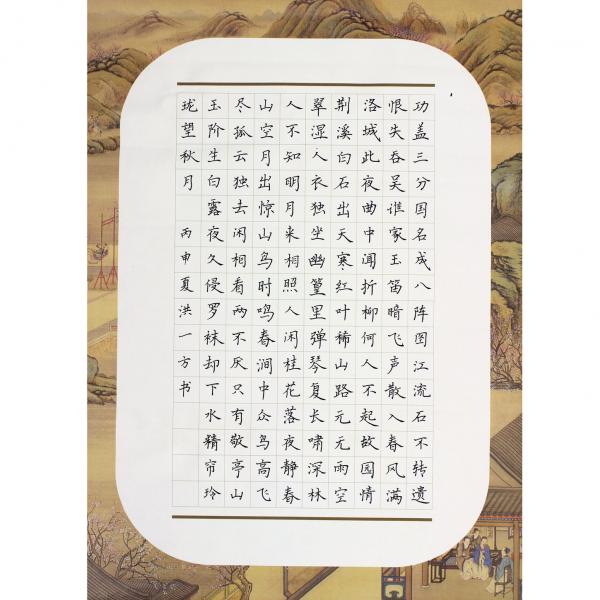 功盖三分国名成八阵图江流石不转遗
恨失吞吴谁家玉笛暗飞声散入春风满
洛城此夜曲中闻折柳何人不起故园情
荆溪白石出天寒红叶稀山路元无雨空
翠湿人衣独坐幽篁里弹琴复长啸深林
人不知明月来相照人闲桂花落夜静春
山空月出惊山鸟时鸣春涧中众鸟高飞
尽孤云独去闲相看两不厌只有敬亭山
玉阶生白露夜久侵罗袜却下水精帘玲
珑望秋月 丙申夏洪一方书